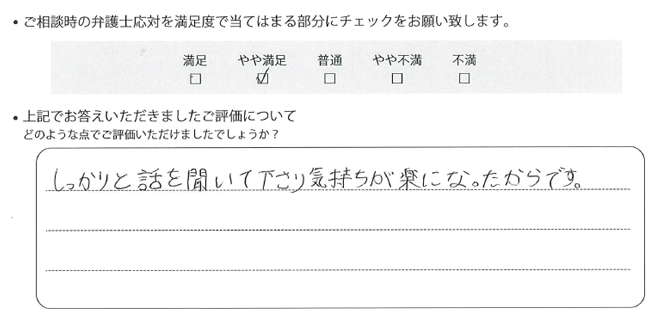 • ご相談時の弁護士応対を満足度で当てはまる部分にチェックをお願い致します。
満足 やや満足 普通 やや不満 不満
□ ☑ □ □ □
• 上記でお答えいただきましたご評価について
どのような点でご評価いただけましたでしょうか？
しっかりと話を聞いて下さり気持ちが楽になったからです。